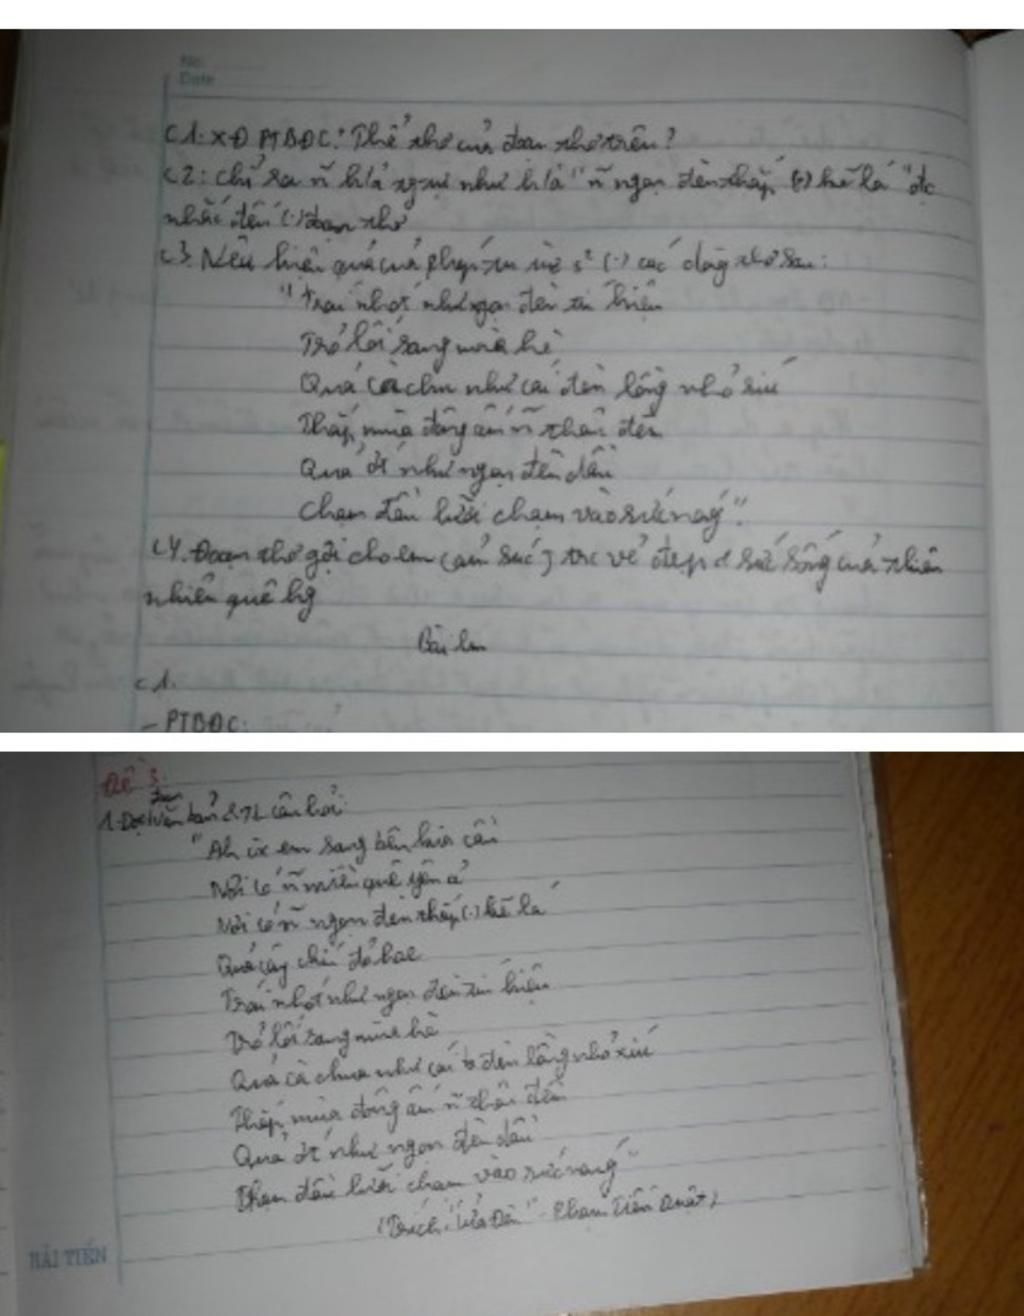 No.
Date
C1. XĐ PTBĐC? Thể thơ của đoạn thơ trên?
C2: Chỉ ra ~ h/ả tg tự như h/ả "~ ngọn đèn thắp (.) kẽ lá" đc
nhắc đến (.) đoạn thơ
C3. Nêu hiệu quả của phép tu từ s² (.) các dòng thơ sau:
"Trái nhót như ngọn đèn tín hiệu
Trỏ lối sang mùa hè
Quả cà chua như cái đèn lồng nhỏ xíu
Thắp mùa đông ấm ~ đêm
Quả ớt như ngọn đèn dầu
Chạm đầu lưỡi chạm vào sức nóng".
C4. Đoạn thơ gợi cho em cảm xúc j trc vẻ đẹp & sức sống của thiên
nhiên quê hg
Bài lm
C1.
- PTBĐC:
Đề 3:
đoạn
1. Đọc văn bản & TL câu hỏi:
"Anh cx em sang bên kia cầu
Nơi có ~ miền quê yên ả
Nơi có ~ ngọn đèn thắp (.) kẽ lá
Quả cây chín đỏ hoe
Trái nhót như ngọn đèn tín hiệu
Trỏ lối sang mùa hè
Quả cà chua như cái đèn lồng nhỏ xíu
Thắp mùa đông ấm ~ đêm
Quả ớt như ngọn đèn dầu
Chạm đầu lưỡi chạm vào sức nóng"
(Trích "Lửa Đèn" - Phạm Tiến Duật)
HẢI TIẾN